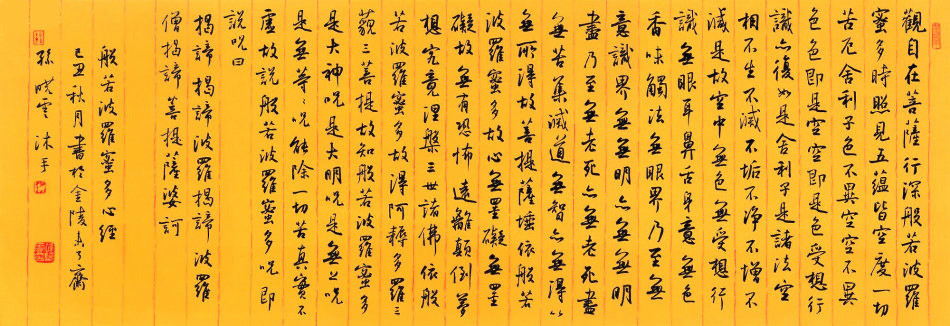 觀自在菩薩行深般若波羅
蜜多時照見五蘊皆空度一切
苦厄舍利子色不異空空不異
色色即是空空即是色受想行
識亦復如是舍利子是諸法空
相不生不滅不垢不淨不增不
減是故空中無色無受想行
識無眼耳鼻舌身意無色
香味觸法無眼界乃至無
意識界無無明亦無無明
盡乃至無老死亦無老死盡
無苦集滅道無智亦無得以
無所得故菩提薩埵依般若
波羅蜜多故心無罣礙無罣
礙故無有恐怖遠離顛倒夢
想究竟涅槃三世諸佛依般
若波羅蜜多故得阿耨多羅三
藐三菩提故知般若波羅蜜多
是大神咒是大明咒是無上咒
是無等々咒能除一切苦真實不
虛故說般若波羅蜜多咒即
說咒曰
揭諦揭諦波羅揭諦波羅
僧揭諦菩提薩婆訶
般若波羅蜜多心經
己丑秋月書於金陵齋
孫曉雲沐手